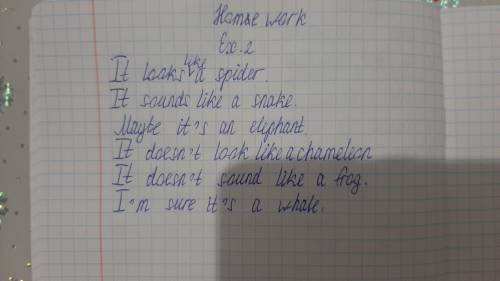 Home work
Ex. 2
It looks like a spider.
It sounds like a snake.
Maybe it's an elephant.
It doesn't look like a chameleon
It doesn't sound like a frog.
I'm sure it's a whale.